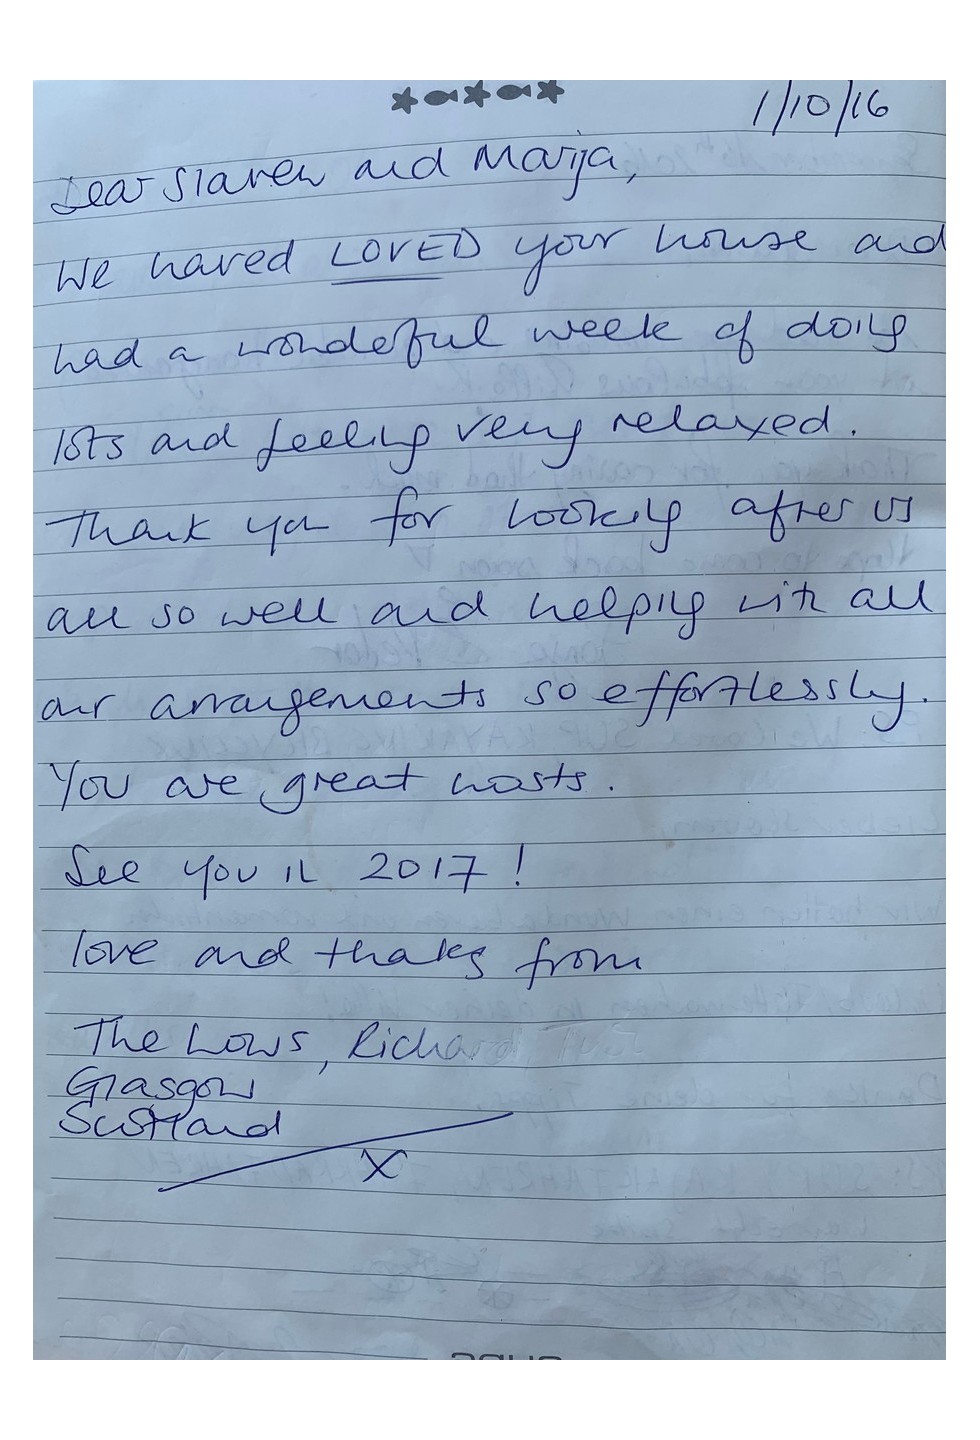 1/10/16
Dear Slaven and Marija,
We haved LOVED your house and
had a wondeful week of doing
lots and feeling very relaxed.
Thank you for looking after us
all so well and helping with all
our arrangements so effortlessly.
You are great hosts.
See you in 2017!
love and thanks from
The Lows, Richard,
Glasgow
Scotland
X